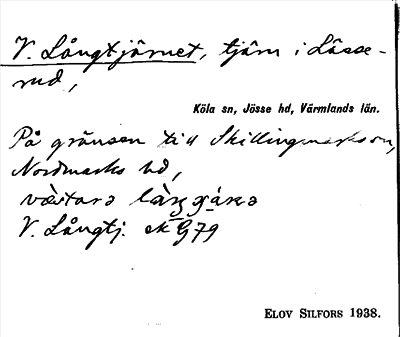 V. Långtjärnet, tjärn i Lässe-
rud,
Köla sn, Jösse hd, Värmlands län.
På gränsen till Skillingmarks sn,
Nordmarks hd,
V. Långtj. ek G79
ELOV SILFORS 1938.